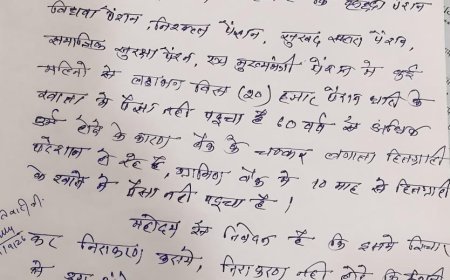 पेंशन
विधवा पेंशन, निराश्रित पेंशन, सुखद सहारा पेंशन,
सामाजिक सुरक्षा पेंशन, एवं मुख्यमंत्री पेंशन में कई
महिनों से लगभग बिस (20) हजार पेंशन धारी के
खाता में पैसा नहीं पहुचा है 60 वर्ष से अधिक
होने के कारण बैंक के चक्कर लगाना हितग्राही
परेशान हो रहे हैं, ग्रामिण बैंक में 10 माह से हितग्राही
के खाते में पैसा नहीं पहुचा है!
महोदय से निवेदन है कि इसमें विचार
कर निराकरण कराये, निराकरण नहीं होने के